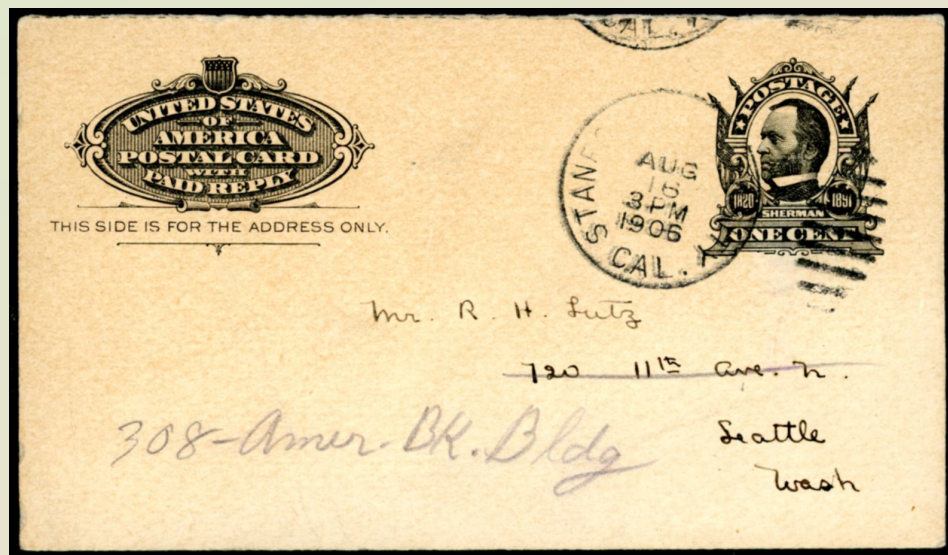 CAL.
UNITED STATES
OF
AMERICA
POSTAL CARD
WITH
PAID REPLY
THIS SIDE IS FOR THE ADDRESS ONLY.
STAN
AUG
16
3 PM
1906
CAL.
POSTAGE
1820 1891
SHERMAN
ONE CENT
Mr. R. H. Lutz
720 11th Ave. N.
308-Amer. BK. Bldg
Seattle
Wash